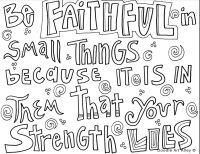 Be FAITHFUL in
Small THINGS
because IT IS IN
Them That your
Strength LIES